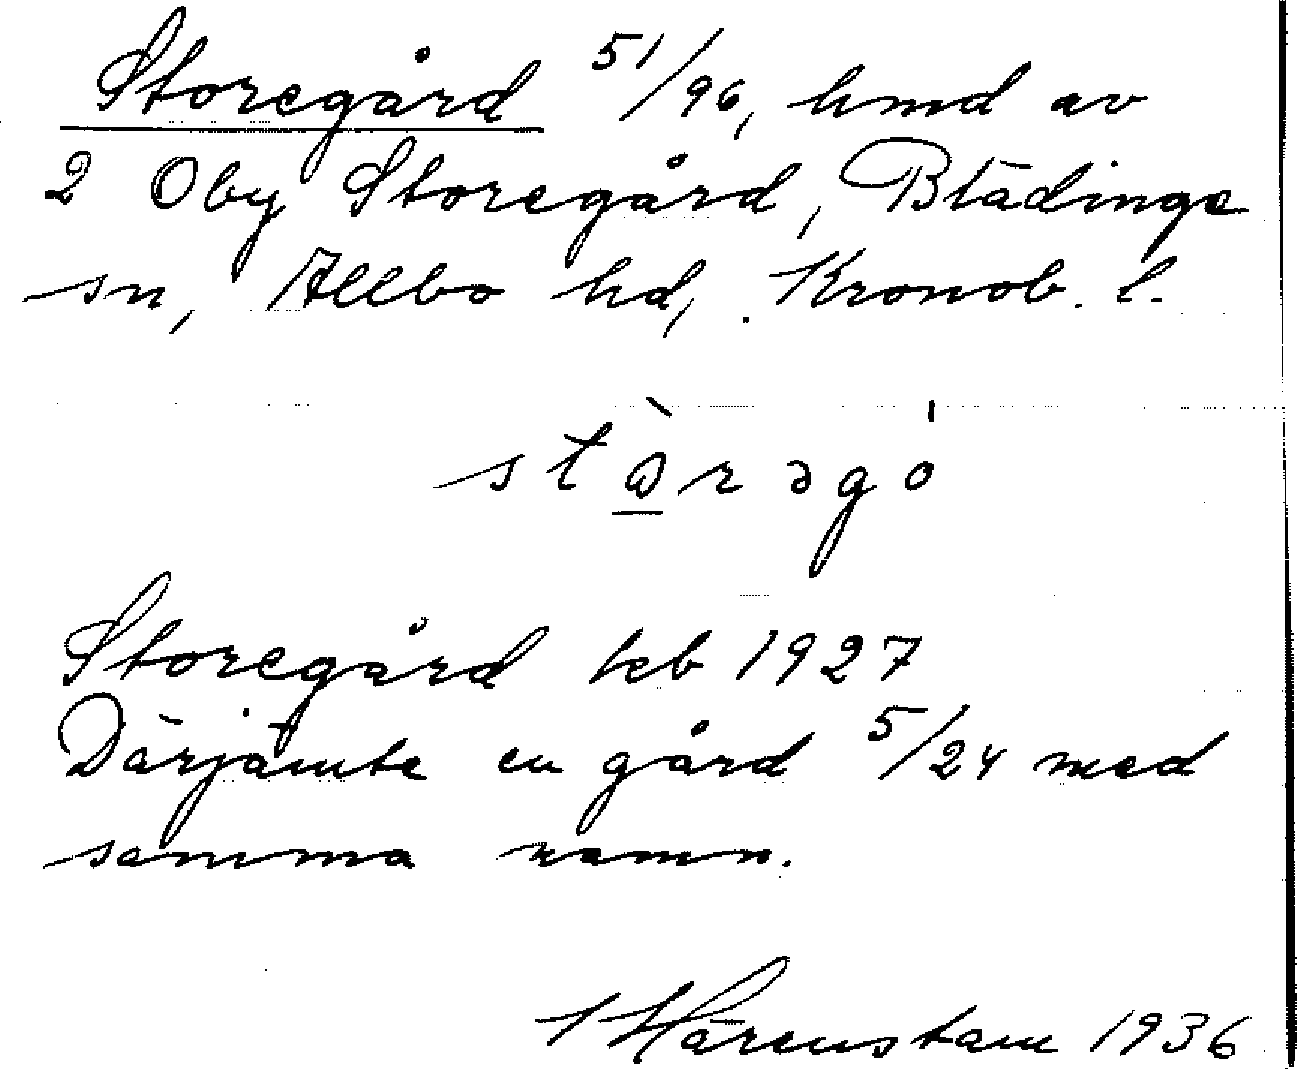 Storegård 51/96, hmd av
2 Oby Storegård, Blädinge
sn, Allbo hd, Kronob. l.
stɔ̀rəgó
Storegård jeb 1927
Därjämte en gård 5/24 med
samma namn.
Härenstam 1936